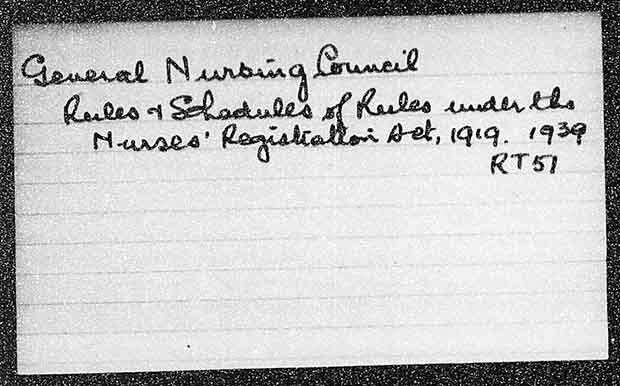 General Nursing Council
Rules & Schedules of Rules under the
Nurses' Registration Act, 1919. 1939
RT51